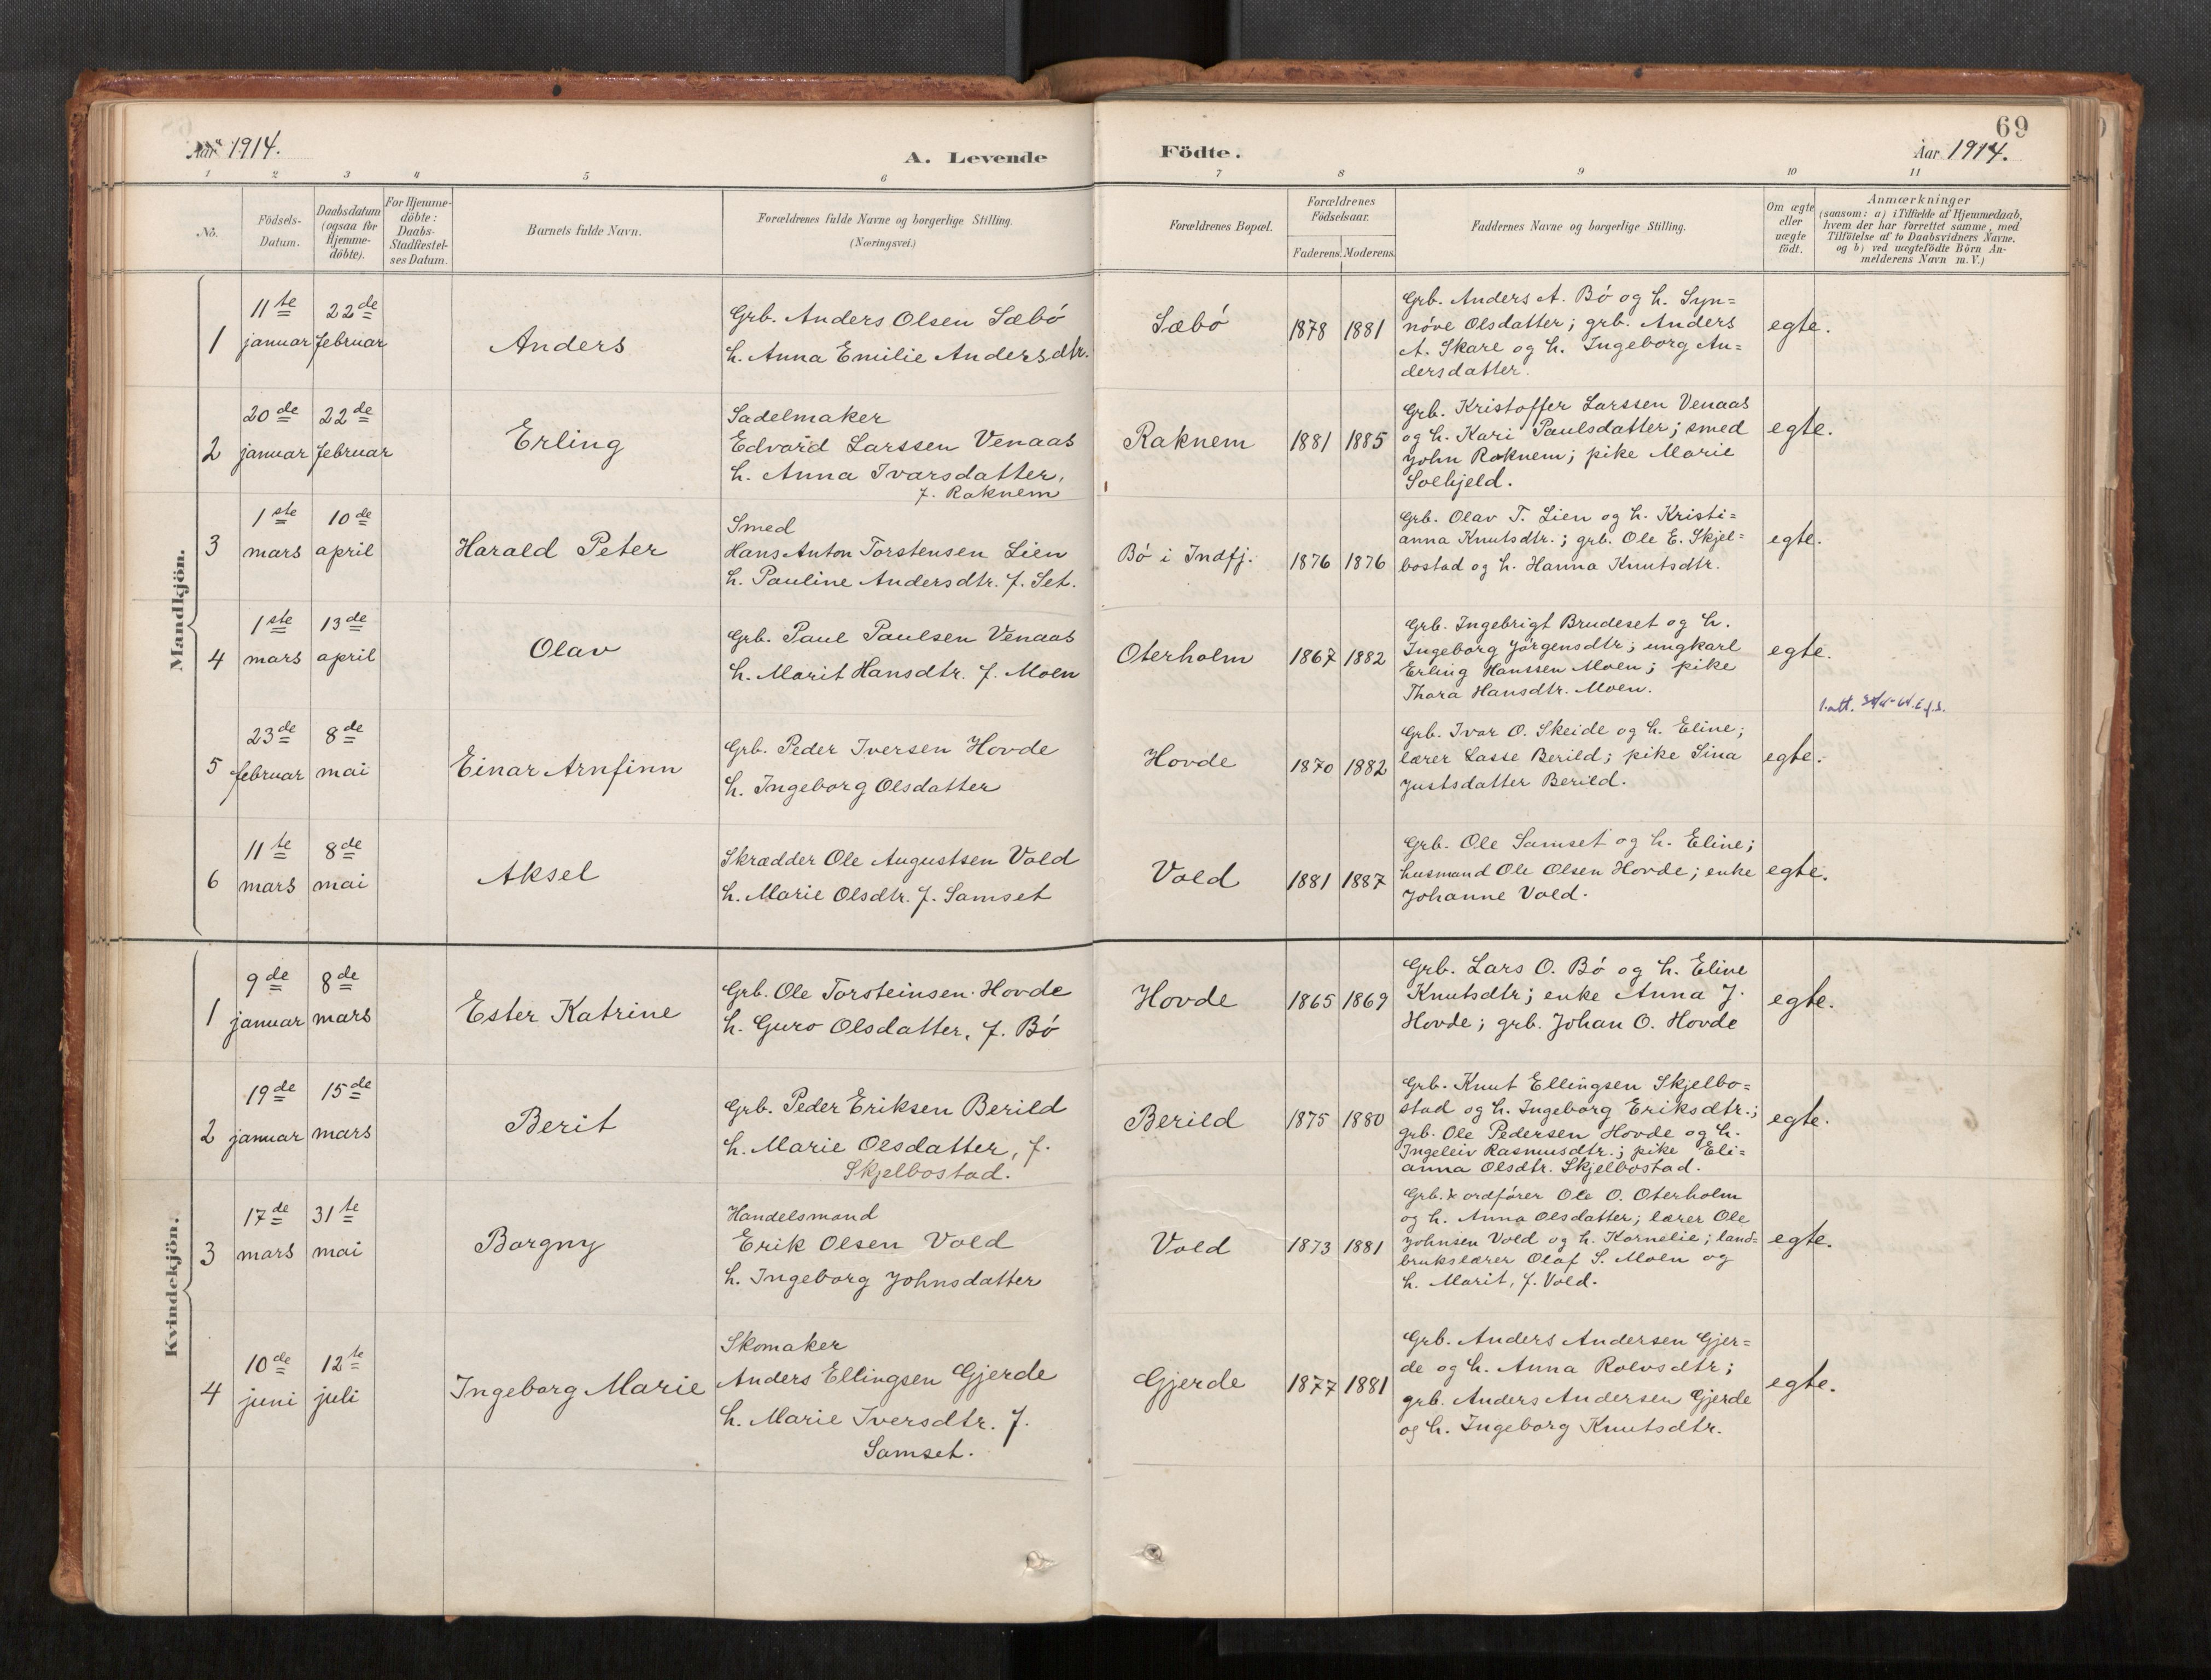 69
Aar 1914.
A. Levende
Födte.
Aar 1914.
1 2 3 4 5 6 7 8 9 10 11
No.
Födsels-
Datum.
Daabsdatum
(ogsaa for
Hjemme-
döbte).
For Hjemme-
döbte:
Daabs-
Stadfæstel-
ses Datum.
Barnets fulde Navn.
Forældrenes fulde Navne og borgerlige Stilling.
(Næringsvei.)
Forældrenes Bopæl.
Forældrenes
Födselsaar.
Faderens. Moderens.
Faddernes Navne og borgerlige Stilling.
Om ægte
eller
uægte
födt.
Anmærkninger
(saasom: a) i Tilfælde af Hjemmedaab,
hvem der har forrettet samme, med
Tilföielse af to Daabsvidners Navne.
og b) ved uægtefödte Börn An-
melderens Navn m. V.)
Mandkjön.
1
11te
januar
22de
februar
Anders
Grb. Anders Olsen Sæbó
h. Anna Emilie Andersdtr.
Sæbó
1878
1881
Grb. Anders A. Bó og h. Syn=
nóve Olsdatter; grb. Anders
A. Skare og h. Ingeborg An=
dersdatter.
egte.
2
20de
januar
22de
februar
Erling
Sadelmaker
Edvard Larssen Venaas
h. Anna Ivarsdatter,
f. Raknem
Raknem
1881
1885
Grb. Kristoffer Larssen Venaas
og h. Kari Paulsdatter; smed
John Raknem; pike Marie
Solhjeld.
egte.
3
1ste
mars
10de
april
Harald Peter
Smed
Hans Anton Torstensen Lien
h. Pauline Andersdtr. f. Set.
Bó i Indfj.
1876
1876
Grb. Olav T. Lien og h. Kristi=
anna Knutsdtr.; grb. Ole E. Skjel=
bostad og h. Hanna Knutsdtr.
egte.
4
1ste
mars
13de
april
Olav
Grb. Paul Paulsen Venaas
h. Marit Hansdtr. f. Moen
Oterholm
1867
1882
Grb. Ingebrigt Brudeset og h.
Ingeborg Jörgensdtr; ungkarl
Erling Hanssen Moen; pike
Thora Hansdtr. Moen.
egte.
5
23de
februar
8de
mai
Einar Arnfinn
Grb. Peder Iversen Hovde
h. Ingeborg Olsdatter
Hovde
1870
1882
Grb. Ivar O. Skeide og h. Eline;
lærer Lasse Berild; pike Sina
Justsdatter Berild.
egte.
6
11te
mars
8de
mai
Aksel
Skrædder Ole Augustsen Vold
h. Marie Olsdtr. f. Samset
Vold
1881
1887
Grb. Ole Samset og h. Eline;
husmand Ole Olsen Hovde; enke
Johanne Vold.
egte.
Kvindekjön.
1
9de
januar
8de
mars
Ester Katrine
Grb. Ole Torsteinsen Hovde
h. Guro Olsdatter, f. Bó
Hovde
1865
1869
Grb. Lars O. Bó og h. Eline
Knutsdtr; enke Anna J.
Hovde; grb. Johan O. Hovde
egte.
2
19de
januar
15de
mars
Berit
Grb. Peder Eriksen Berild
h. Marie Olsdatter, f.
Skjelbostad.
Berild
1875
1880
Grb. Knut Ellingsen Skjelbo=
stad og h. Ingeborg Eriksdtr.;
grb. Ole Pedersen Hovde og h.
Ingeleiv Rasmusdtr.; pike Eli=
anna Olsdtr. Skjelbostad.
egte.
3
17de
mars
31te
mai
Borgny
Handelsmand
Erik Olsen Vold
h. Ingeborg Johnsdatter
Vold
1873
1881
Grb. & ordfører Ole O. Oterholm
og h. Anna Olsdatter; lærer Ole
Johnsen Vold og h. Kornelie; land=
brukslærer Olaf S. Moen og
h. Marit, f. Vold.
egte.
4
10de
juni
12te
juli
Ingeborg Marie
Skomaker
Anders Ellingsen Gjerde
h. Marie Iversdtr. f.
Samset.
Gjerde
1877
1881
Grb. Anders Andersen Gjer=
de og h. Anna Rolvsdtr;
grb. Anders Andersen Gjerde
og h. Ingeborg Knutsdtr.
egte.